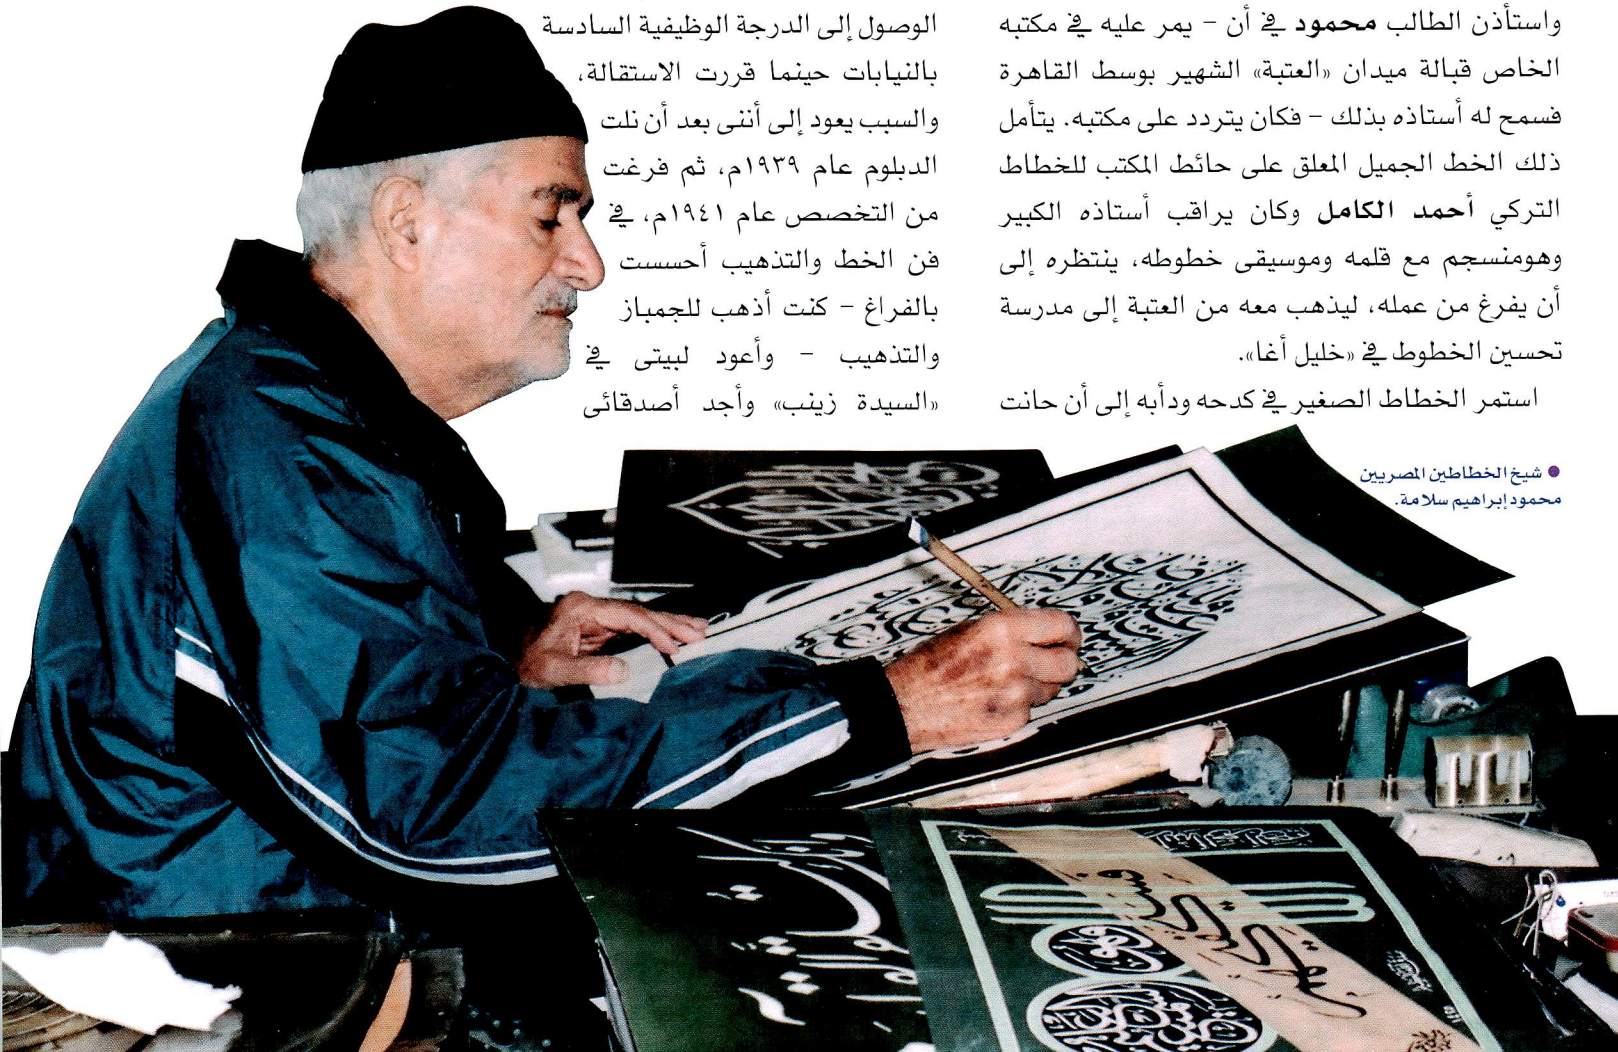 واستأذن الطالب محمود في أن – يمر عليه في مكتبه
الخاص قبالة ميدان «العتبة» الشهير بوسط القاهرة
فسمح له أستاذه بذلك – فكان يتردد على مكتبه. يتأمل
ذلك الخط الجميل المعلق على حائط المكتب للخطاط
التركي أحمد الكامل وكان يراقب أستاذه الكبير
وهومنسجم مع قلمه وموسيقى خطوطه، ينتظره إلى
أن يفرغ من عمله، ليذهب معه من العتبة إلى مدرسة
تحسين الخطوط في «خليل أغا».
استمر الخطاط الصغير في كدحه ودأبه إلى أن حانت
الوصول إلى الدرجة الوظيفية السادسة
بالنيابات حينما قررت الاستقالة،
والسبب يعود إلى أننى بعد أن نلت
الدبلوم عام ١٩٣٩م، ثم فرغت
من التخصص عام ١٩٤١م، في
فن الخط والتذهيب أحسست
بالفراغ – كنت أذهب للجمباز
والتذهيب – وأعود لبيتى في
«السيدة زينب» وأجد أصدقائى
● شيخ الخطاطين المصريين
محمود إبراهيم سلامة.